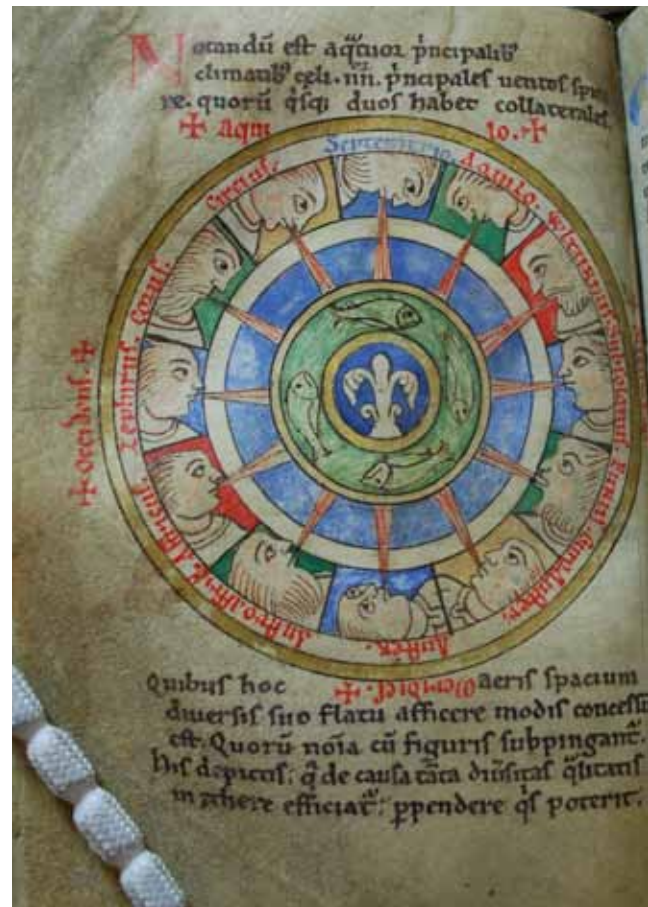 Notandū est aq̄tuor p̄ncipalib⁹
climatib⁹ cęli .iiii. p̄ncipales uentos spira
re. quorū q̄sq̨ duos habet collaterales.
✠ Aqui lo. ✠
Septentrio.
Aquilo.
Uulturnus.
Subsolanus.
Eurus.
Euro Auster.
Auster.
Austro affric⁹.
Affricus.
Zephirus.
Corus.
Circius.
✠ Occidens. ✠
Meridies. ✠
Quibus hoc aeris spacium
diuersis suo flatu afficere modis concessū
est. Quorū noīa cū figuris subpingant᷑.
His depictis; q̄ de causa tāta diūsitas q̄litatis
in ęthere efficiat᷑; ꝑpendere q̄s poterit.